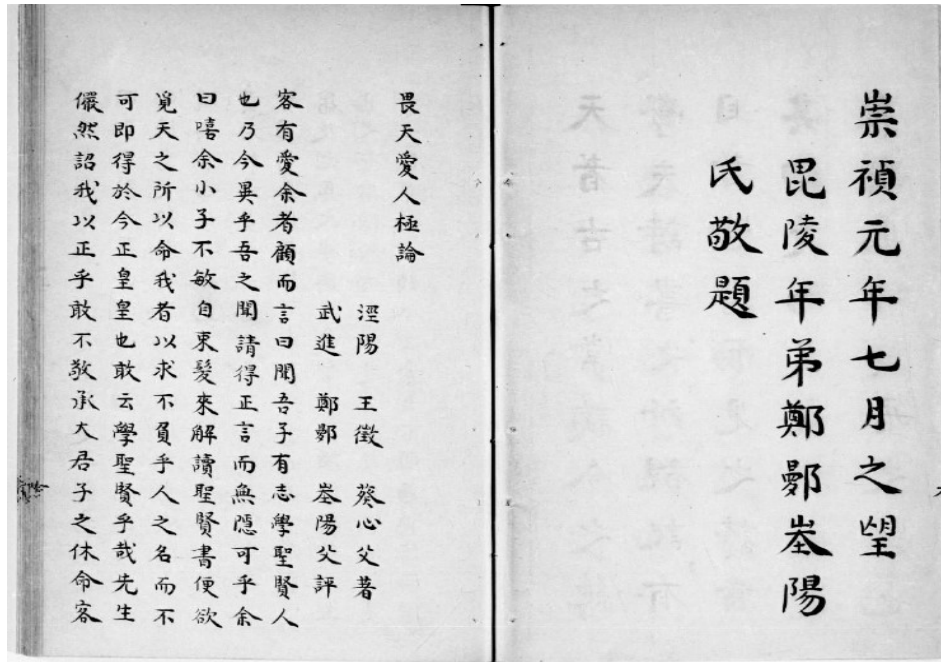 崇禎元年七月之望
毘陵年弟鄭鄤峚陽
氏敬題
畏天愛人極論
涇陽 王徵 葵心父著
武進 鄭鄤 峚陽父評
客有愛余者顧而言曰聞吾子有志學聖賢人
也乃今異乎吾之聞請得正言而無隱可乎余
曰嘻余小子不敏自束髮來解讀聖賢書便欲
覓天之所以命我者以求不負乎人之名而不
可即得於今正皇皇也敢云學聖賢乎哉先生
儼然詔我以正乎敢不敬承大君子之休命客